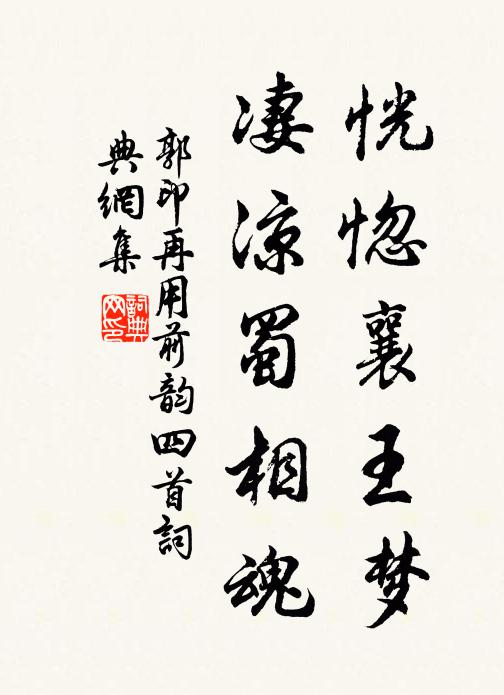 恍惚襄王梦
凄凉蜀相魂
郭印再用前韵四首詞
典網集
詞典网印